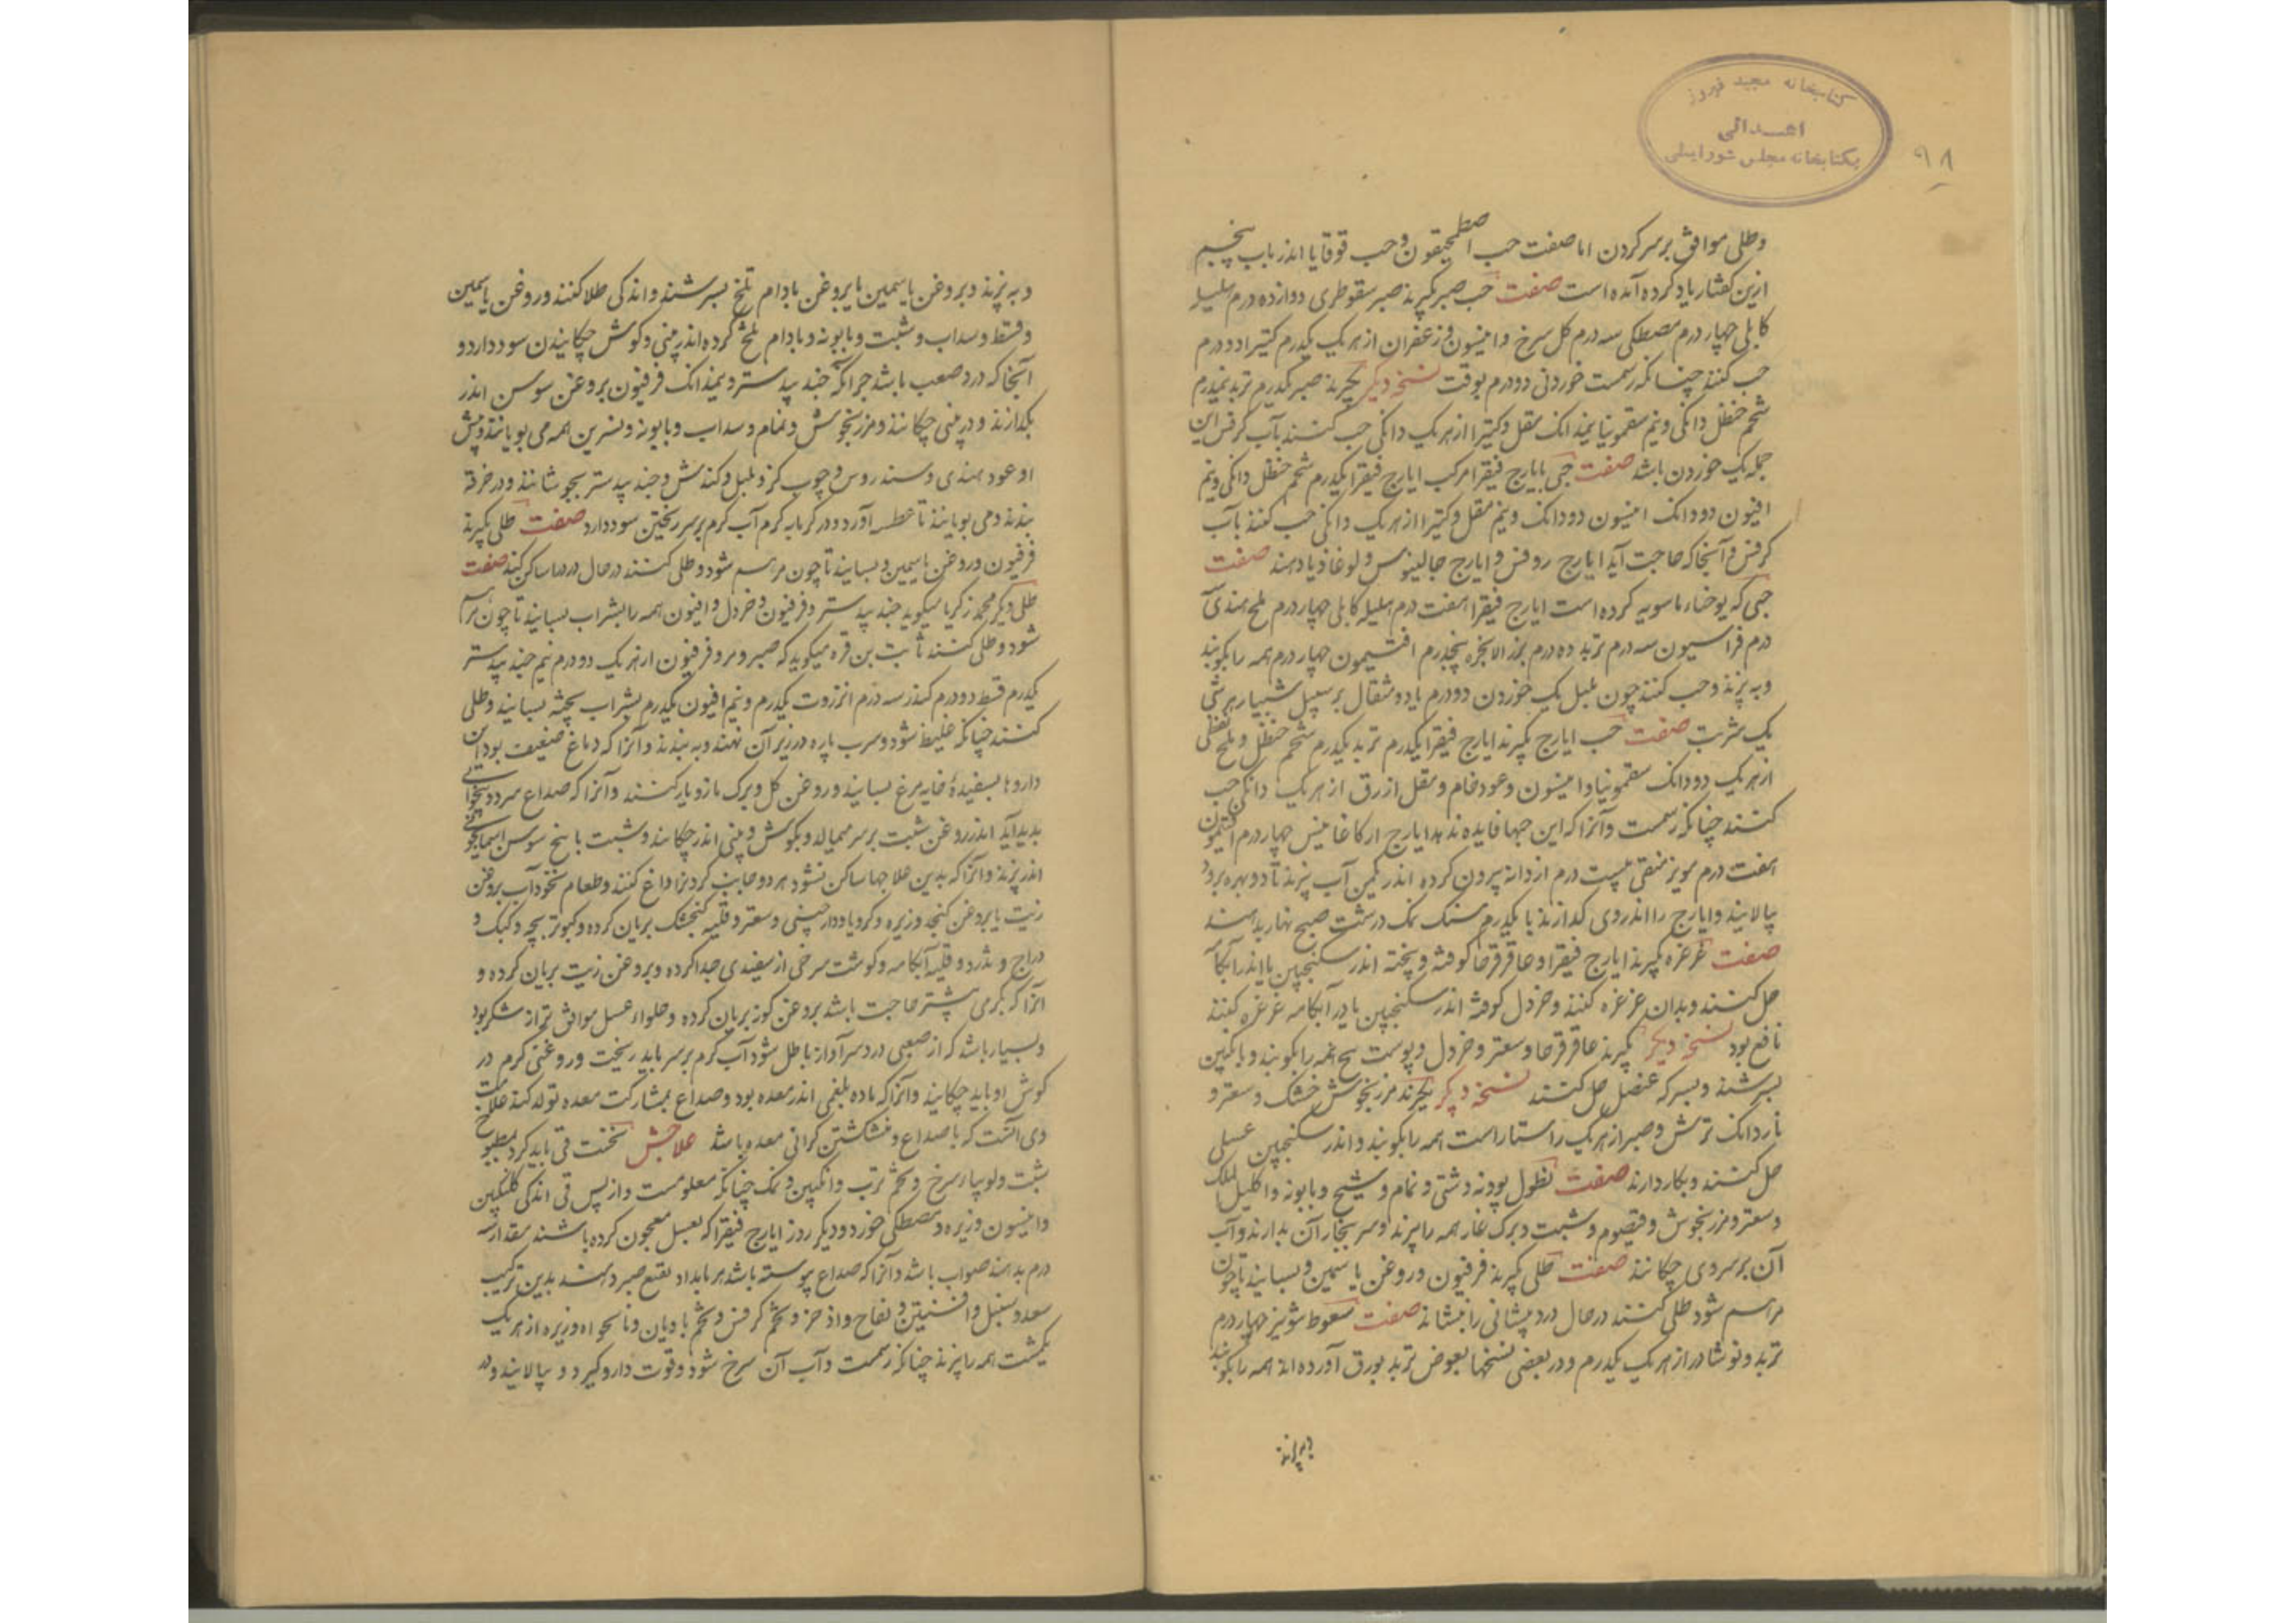 کتابخانه مجید فیروز
اهدائی
بکتابخانه مجلس شورایملی
۹۸
وطلی موافق بر سر کردن اما صفت حب اصطمحیقون وحب قوقایا اندر باب پنجم
ازین کفتار یاد کرده آمده است صفت حب صبر بکیرند صبر سقوطری دوازده درم هلیله
کابلی چهار درم مصطکی سه درم کل سرخ وانیسون وزعفران از هر یک یکدرم کتیرا دو درم
حب کنند چنانکه رسمست خوردنی دودرم بوقت نسخه دیکر بکیرند صبر یکدرم تربد نیمدرم
شحم حنظل دانکی ونیم سقمونیا نیمدانک مقل وکتیرا از هر یک دانکی حب کنند بآب کرفس این
جمله یک خوردن باشد صفت حبی بایارج فیقرا مرکب ایارج فیقرا یکدرم شحم حنظل دانکی ونیم
افیون دودانک انیسون دودانک ونیم مقل وکتیرا از هر یک دانکی حب کنند بآب
کرفس وآنجا که حاجت آید ایارج روفس وایارج جالینوس ولوغاذیا دهند صفت
حبی که یوحناء ماسویه کرده است ایارج فیقرا هفت درم هلیله کابلی چهار درم ملح هندی
درم فراسیون سه درم تربد ده درم بزر الانجره پنجدرم افتیمون چهار درم همه را بکوبند
وبه پزند وحب کنند چون پلپل یک خوردن دودرم یا دو مثقال بر سبیل شبیار هر شبی
یک شربت صفت حب ایارج بکیرند ایارج فیقرا یکدرم تربد یکدرم شحم حنظل وملح نفطی
از هر یک دودانک سقمونیا وانیسون وعود خام ومقل ازرق از هر یک دانکی حب
کنند چنانکه رسمست وآنرا که این حبها فایده ندهد ایارج ارکاغانیس چهار درم افتیمون
هفت درم مویز منقی بیست درم از دانه بیرون کرده اندر یکمن آب بپزند تا دو بهره برود
پالایند وایارج را اندروی کدازند با یکدرم سنک نمک درشت صبح نهار بدهند
صفت غرغره بکیرند ایارج فیقرا وعاقرقرحا کوفته وپخته اندر سکنجبین یا اندر آبکامه
حل کنند وبدان غرغره کنند وخردل کوفته اندر سکنجبین یا در آبکامه غرغره کنند
نافع بود نسخه دیکر بکیرند عاقرقرحا وسعتر وخردل وپوست بیخ همه را بکوبند وبانکبین
بسرشند وبسرکه عنصل حل کنند نسخه دیکر بکیرند مرزنجوش خشک وسعتر و
ناردانک ترش وصبر از هر یک راستا راست همه را بکوبند واندر سکنجبین عسلی
حل کنند وبکار دارند صفت نطول پودنه دشتی ونمام وشیح وبابونه واکلیل الملک
وسعتر ومرزنجوش وقیصوم وشبت وبرک غار همه را بپزند وسر ببخار آن بدارند وآب
آن بر سر وی چکانند صفت طلی بکیرند فرفیون وروغن یاسمین وبسایند تا چون
مرهم شود طلی کنند در حال درد پیشانی را بنشاند صفت سعوط شونیز چهار درم
تربد ونوشادر از هر یک یکدرم ودر بعضی نسخها بعوض تربد بورق آورده اند همه را بکوبند
وبه پزند وبروغن یاسمین یا بروغن بادام تلخ بسرشند واندکی طلا کنند وروغن یاسمین
وقسط وسداب وشبت وبابونه وبادام تلخ کرده اندر بینی وکوش چکانیدن سود دارد و
آنجا که درد صعب باشد جندبیدستر ونیمدانک فرفیون بروغن سوسن اندر
بکدازند ودر بینی چکانند ومرزنجوش ونمام وسداب وبابونه ونسرین همه می بویانند وپیش
او عود هندی وسندروس وچوب کز وپلپل وکندش وجندبیدستر بجوشانند ودر خرقه
بندند ومی بویانند تا عطسه آورد ودر کرمابه کرم آب کرم بر سر ریختن سود دارد صفت طلی بکیرند
فرفیون وروغن یاسمین وبسایند تا چون مرهم شود وطلی کنند در حال درد را ساکن کند صفت
طلی دیکر محمد زکریا میکوید جندبیدستر وفرفیون وخردل وافیون همه را بشراب بسایند تا چون مرهم
شود وطلی کنند ثابت بن قره میکوید که صبر ومر وفرفیون از هر یک دو درم نیم جندبیدستر
یکدرم قسط دودرم کندر سه درم انزروت یکدرم ونیم افیون یکدرم بشراب پخته بسایند وطلی
کنند چنانکه غلیظ شود وسرب پاره در زیر آن نهند وبه بندند وآنرا که دماغ ضعیف بود این
داروها بسفیدهٔ خایه مرغ بسایند وروغن کل وبرک مازو یار کنند وآنرا که صداع سرد وبیخوابی
پدید آید اندر روغن شبت بر سر میمالد وبکوش وبینی اندر چکانند وشبت با بیخ سوسن اسمانجونی
اندر پزند وآنرا که بدین علاجها ساکن نشود هر دو جانب کردن را داغ کنند وطعام نخود آب بروغن
زیت یا بروغن کنجد وزیره وکرویا ودارچینی وسعتر وقلیه کنجشک بریان کرده وکبوتر بچه وکبک و
دراج وتذرو وقلیه آبکامه وکوشت سرخی از سفیدی جدا کرده وبروغن زیت بریان کرده و
آنرا که بکرمی بیشتر حاجت باشد بروغن کوز بریان کرده وحلواء عسل موافق تر از شکر بود
وبسیار باشد که از صعبی درد سر آواز باطل شود آب کرم بر سر باید ریخت وروغنی کرم در
کوش او باید چکانید وآنرا که ماده بلغمی اندر معده بود وصداع بمشارکت معده تولد کند علامت
وی آنست که با صداع ومنش کشتن کرانی معده باشد علاجش نخست قی باید کرد بمطبوخ
شبت ولوبیا سرخ وتخم ترب وانکبین ونمک چنانکه معلومست واز پس قی اندکی کلنکبین
وانیسون وزیره ومصطکی خورد ودیکر روز ایارج فیقرا که بعسل معجون کرده باشند مقدار سه
درم بدهند صواب باشد وآنرا که صداع پیوسته باشد هر بامداد نقیع صبر دهند بدین ترکیب
سعد وسنبل وافسنتین وفقاح واذخر وتخم کرفس وتخم بادیان ونانخواه وزیره از هر یک
یکمشت همه را بپزند چنانکه رسمست وآب آن سرخ شود وقوت دارو کیرد وپالایند ودر